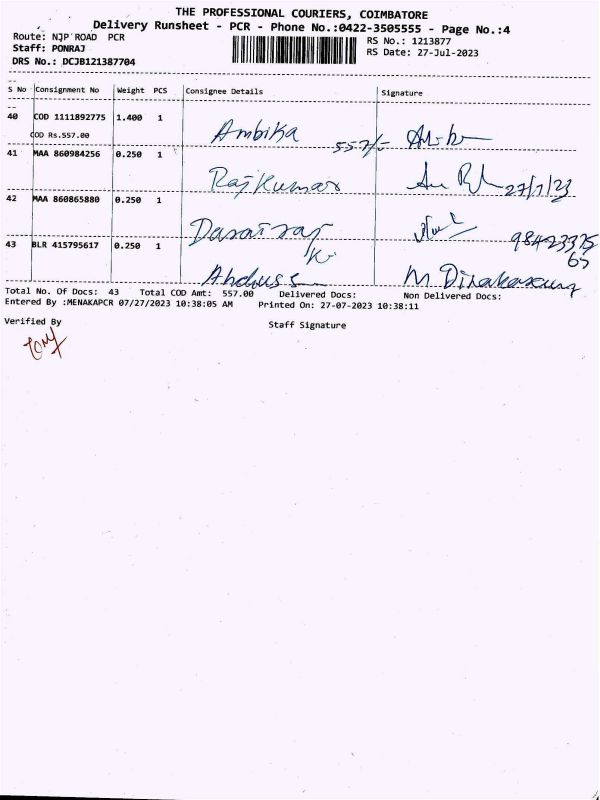 THE PROFESSIONAL COURIERS, COIMBATORE
Delivery Runsheet - PCR - Phone No.:0422-3505555 - Page No.:4
Route: NJP ROAD PCR
RS No.: 1213877
Staff: PONRAJ
RS Date: 27-Jul-2023
DRS No.: DCJB121387704
S No Consignment No Weight PCS Consignee Details Signature
40 COD 1111892775 1.400 1 Ambika
COD Rs.557.00 557/-
41 MAA 860984256 0.250 1 Rajkumar 27/7/23
42 MAA 860865880 0.250 1 Dasairaj
K 98423375
65
43 BLR 415795617 0.250 1 M
Total No. Of Docs: 43 Total COD Amt: 557.00 Delivered Docs: Non Delivered Docs:
Entered By :MENAKAPCR 07/27/2023 10:38:05 AM Printed On: 27-07-2023 10:38:11
Verified By
Staff Signature